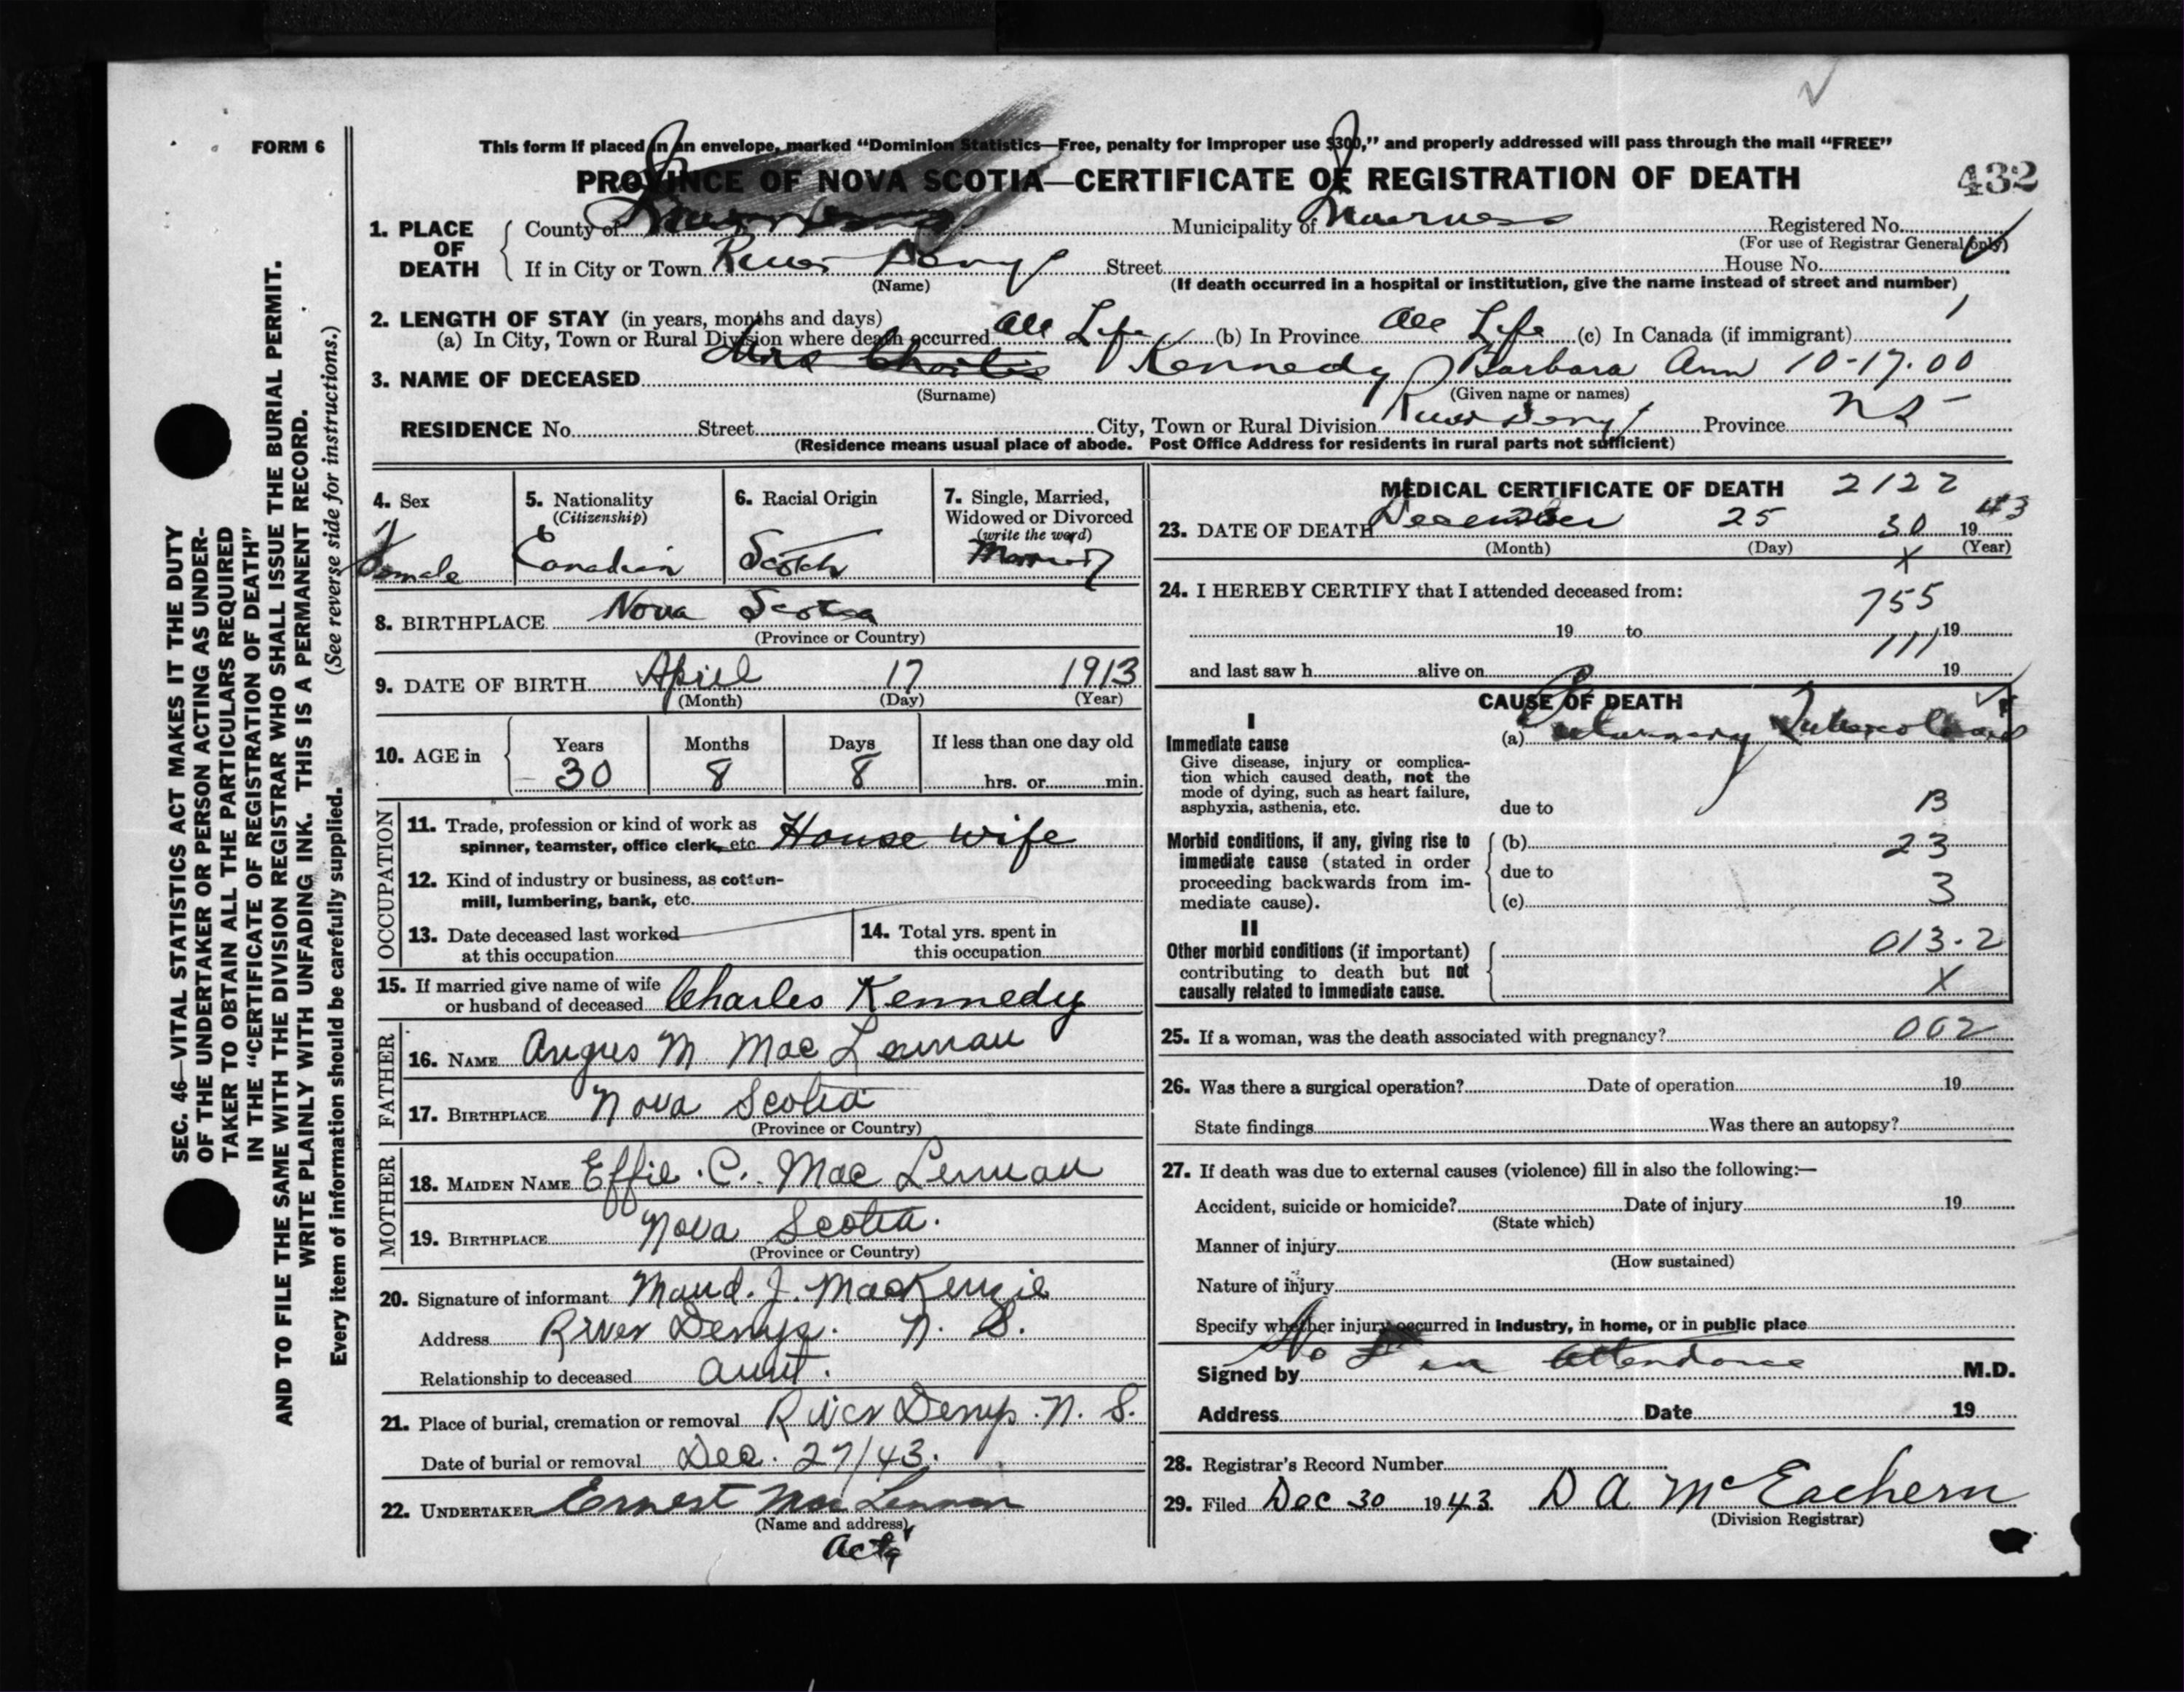 FORM 6
This form if placed in an envelope, marked “Dominion Statistics—Free, penalty for improper use $300,” and properly addressed will pass through the mail “FREE”
PROVINCE OF NOVA SCOTIA—CERTIFICATE OF REGISTRATION OF DEATH
432
1. PLACE OF DEATH
County of Inverness Municipality of Inverness Registered No.
(For use of Registrar General only)
If in City or Town River Denys Street House No.
(Name) (If death occurred in a hospital or institution, give the name instead of street and number)
2. LENGTH OF STAY (in years, months and days)
(a) In City, Town or Rural Division where death occurred All Life (b) In Province All Life (c) In Canada (if immigrant)
3. NAME OF DECEASED Mrs Charles Kennedy Barbara Ann 10-17.00
(Surname) (Given name or names)
RESIDENCE No. Street City, Town or Rural Division River Denys Province N S
(Residence means usual place of abode. Post Office Address for residents in rural parts not sufficient)
4. Sex
Female
5. Nationality
(Citizenship)
Canadian
6. Racial Origin
Scotch
7. Single, Married, Widowed or Divorced
(write the word)
Married
8. BIRTHPLACE Nova Scotia
(Province or Country)
9. DATE OF BIRTH April 17 1913
(Month) (Day) (Year)
10. AGE in
Years Months Days If less than one day old
30 8 8 hrs. or min.
OCCUPATION
11. Trade, profession or kind of work as spinner, teamster, office clerk, etc. House wife
12. Kind of industry or business, as cotton-mill, lumbering, bank, etc.
13. Date deceased last worked at this occupation
14. Total yrs. spent in this occupation
15. If married give name of wife or husband of deceased Charles Kennedy
FATHER
16. NAME Angus M MacLennan
17. BIRTHPLACE Nova Scotia
(Province or Country)
MOTHER
18. MAIDEN NAME Effie . C. MacLennan
19. BIRTHPLACE Nova Scotia.
(Province or Country)
20. Signature of informant Maud. J. MacKenzie
Address River Denys. N. S.
Relationship to deceased aunt.
21. Place of burial, cremation or removal River Denys. N. S.
Date of burial or removal Dec. 27/43.
22. UNDERTAKER Ernest MacLennan
(Name and address)
MEDICAL CERTIFICATE OF DEATH 2122
23. DATE OF DEATH December 25 30 19 43
(Month) (Day) (Year)
X
24. I HEREBY CERTIFY that I attended deceased from:
755
19 to 19
111
and last saw h alive on 19
CAUSE OF DEATH
I
Immediate cause
Give disease, injury or complication which caused death, not the mode of dying, such as heart failure, asphyxia, asthenia, etc.
(a) Pulmonary Tuberculosis
due to
B
Morbid conditions, if any, giving rise to immediate cause (stated in order proceeding backwards from immediate cause).
(b) 23
due to
(c) 3
II
Other morbid conditions (if important) contributing to death but not causally related to immediate cause.
013.2
X
25. If a woman, was the death associated with pregnancy? 002
26. Was there a surgical operation? Date of operation 19
State findings Was there an autopsy?
27. If death was due to external causes (violence) fill in also the following:—
Accident, suicide or homicide? Date of injury 19
(State which)
Manner of injury
(How sustained)
Nature of injury
Specify whether injury occurred in industry, in home, or in public place
Signed by No in attendance M.D.
Address Date 19
28. Registrar’s Record Number
29. Filed Dec 30 1943 D A McEachern
(Division Registrar)
SEC. 46—VITAL STATISTICS ACT MAKES IT THE DUTY
OF THE UNDERTAKER OR PERSON ACTING AS UNDER-
TAKER TO OBTAIN ALL THE PARTICULARS REQUIRED
IN THE “CERTIFICATE OF REGISTRATION OF DEATH”
AND TO FILE THE SAME WITH THE DIVISION REGISTRAR WHO SHALL ISSUE THE BURIAL PERMIT.
WRITE PLAINLY WITH UNFADING INK. THIS IS A PERMANENT RECORD.
Every item of information should be carefully supplied. (See reverse side for instructions.)